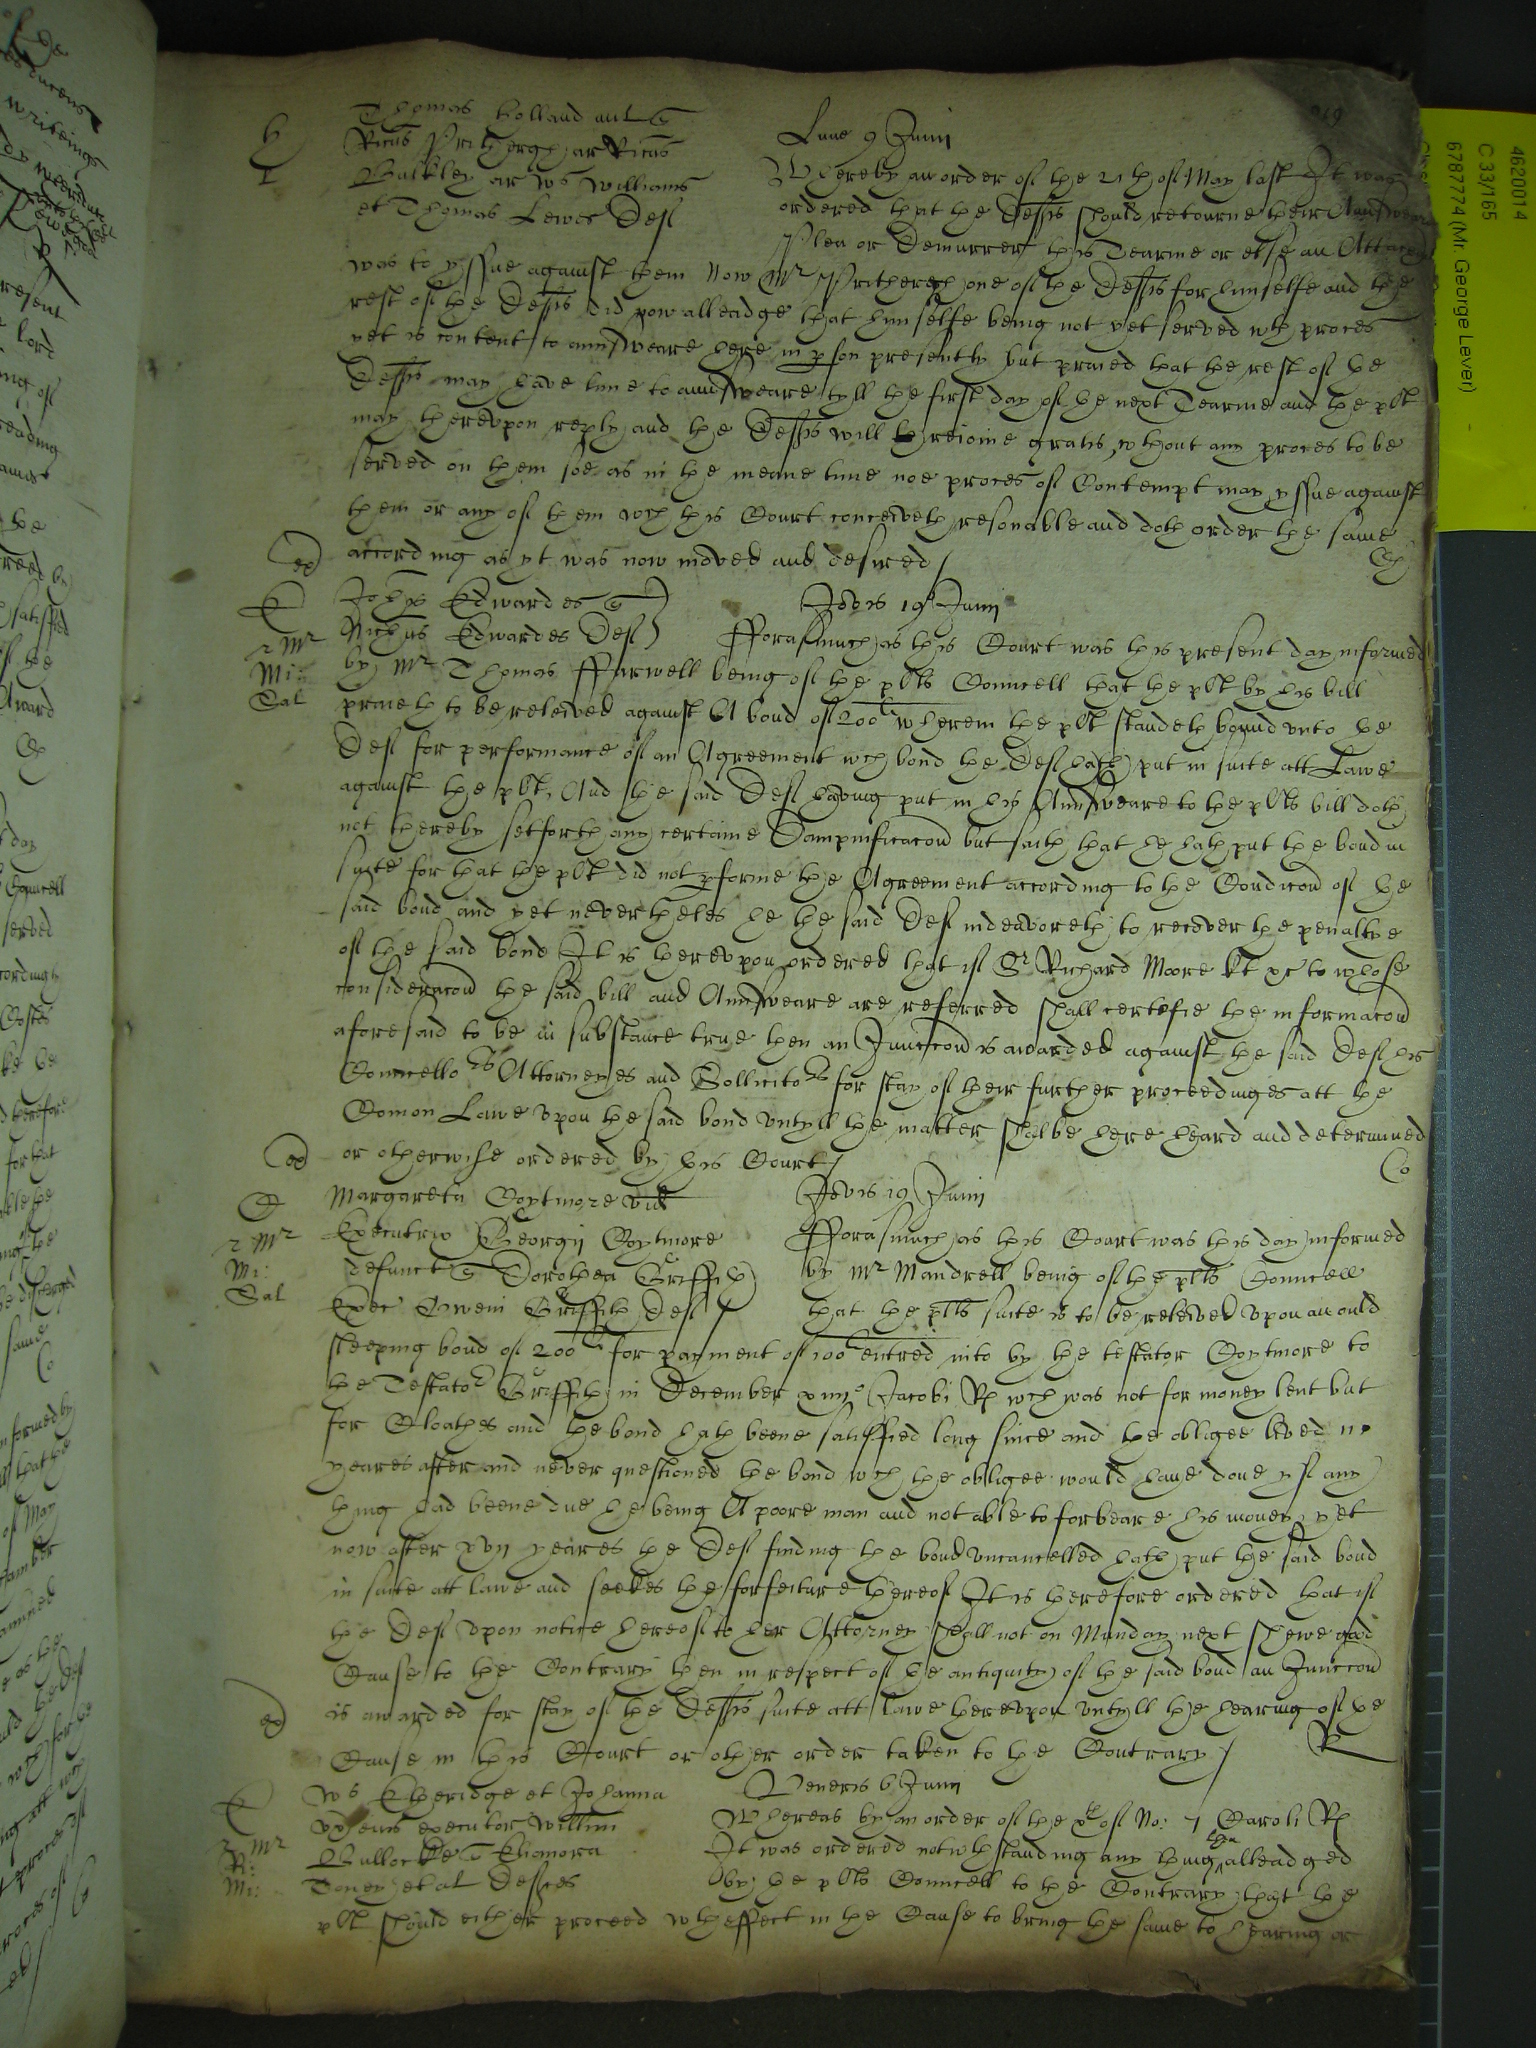 Thomas Holland quer
Ricus Prithergh ar Ricus
Bulkley ar Ws Williams
et Thomas Lewes Def
Lune 9 Junii
Whereby an order of the 21th of May last It was
ordered that the Defts should retourne their Aunsweare
Plea or Demurrer this Tearme or else an Attachmt
was to yssue against them Now Mr Prithergh one of the Defts for himselfe and the
rest of the Defts did now alleadge that himselfe being not yet served wth proces
yet is content to aunsweare here in pson presently but praied that the rest of the
Defts may have time to aunsweare tyll the first day of the next Tearme and the plt
may therevpon reply and the Defts will reioine gratis wthout any proces to be
served on them soe as in the meane time noe proces of Contempt may yssue against
them or any of them wch this Court conceiveth resonable and doth order the same
according as yt was now moved and desired /
ex
E
2 Mr
Mi:
Sal
John Edwardes quer
Nichus Edwardes Def
Jovis 19 Junii
Fforasmuch as this Court was this present day informed
by Mr Thomas Ffarwell being of the plts Councell that the plt by his bill
praieth to be releived against A bond of 200l wherein the plt standeth bound vnto the
Def for performance of an Agreement wch bond the Def hath put in suite att Lawe
against the plt, And the said Def having put in his Aunsweare to the plts bill doth
not thereby setforth any certaine Dampnificacon but saith that he hath put the bond in
suite for that the plt did not pforme the Agreement according to the Condicon of the
said bond and yet nevertheles he the said Def indeavoreth to recover the penaltye
of the said bond It is therevpon ordered that if Sr Richard Moore kt &c to whose
consideracon the said bill and Aunsweare are referred shall certefie the informacon
aforesaid to be in substance true then an Iniuccon is awarded against the said Def his
Councellors Attorneyes and Sollicitors for stay of their further proceedinges att the
Comon Lawe vpon the said bond vntyll the matter shalbe here heard and determined
or otherwise ordered by this Court /
Co
ex
C
2 Mr
Mi:
Sal
Margareta Coytmore vid
Executrix Georgii Coytmore
defunct quer Dorothea Griffith
Exec Oweni Griffith Def
Jovis 19 Junii
Fforasmuch as this Court was this day informed
by Mr Mandrell being of the plts Councell
that the plts suite is to be releived vpon an ould
sleeping bond of 200l for payment of 100l entred into by the testator Coytmore to
the Testator Griffith in December xiiii° Jacobi Rs wch was not for money lent but
for Cloathes and the bond hath beene satisfied long since and the obligee lived
yeares after and never questioned the bond wch the obligee would have done yf any
thing had beene due he being A poore man and not able to forbeare his money yet
now after xvii yeares the Def finding the bond vncancelled hath put the said bond
in suite att lawe and seekes the forfeiture thereof It is therefore ordered that if
the Def vpon notice hereof to her Attorney shall not on Munday next shewe good
Cause to the Contrary then in respect of the antiquity of the said bond an Iniuccon
is awarded for stay of the Defts suite att lawe therevpon vntyll the hearing of the
Cause in this Court or other order taken to the Contrary /
R
ex
E
2 Mr
R:
Mi:
Ws Etheridge et Johanna
vx eius executor Willimi
Bullocke quer Elionora
Toney et al Deftes
Veneris 6 Junii
Whereas by an order of the xth of No: 7 Caroli Rs
It was ordered notwthstanding any thing then alleadged
by the plts Councell to the Contrary that the
plt should either proceed wth effect in the Cause to bring the same to hearing or
4620014
C 33/165
6787774 (Mr. George Lever)